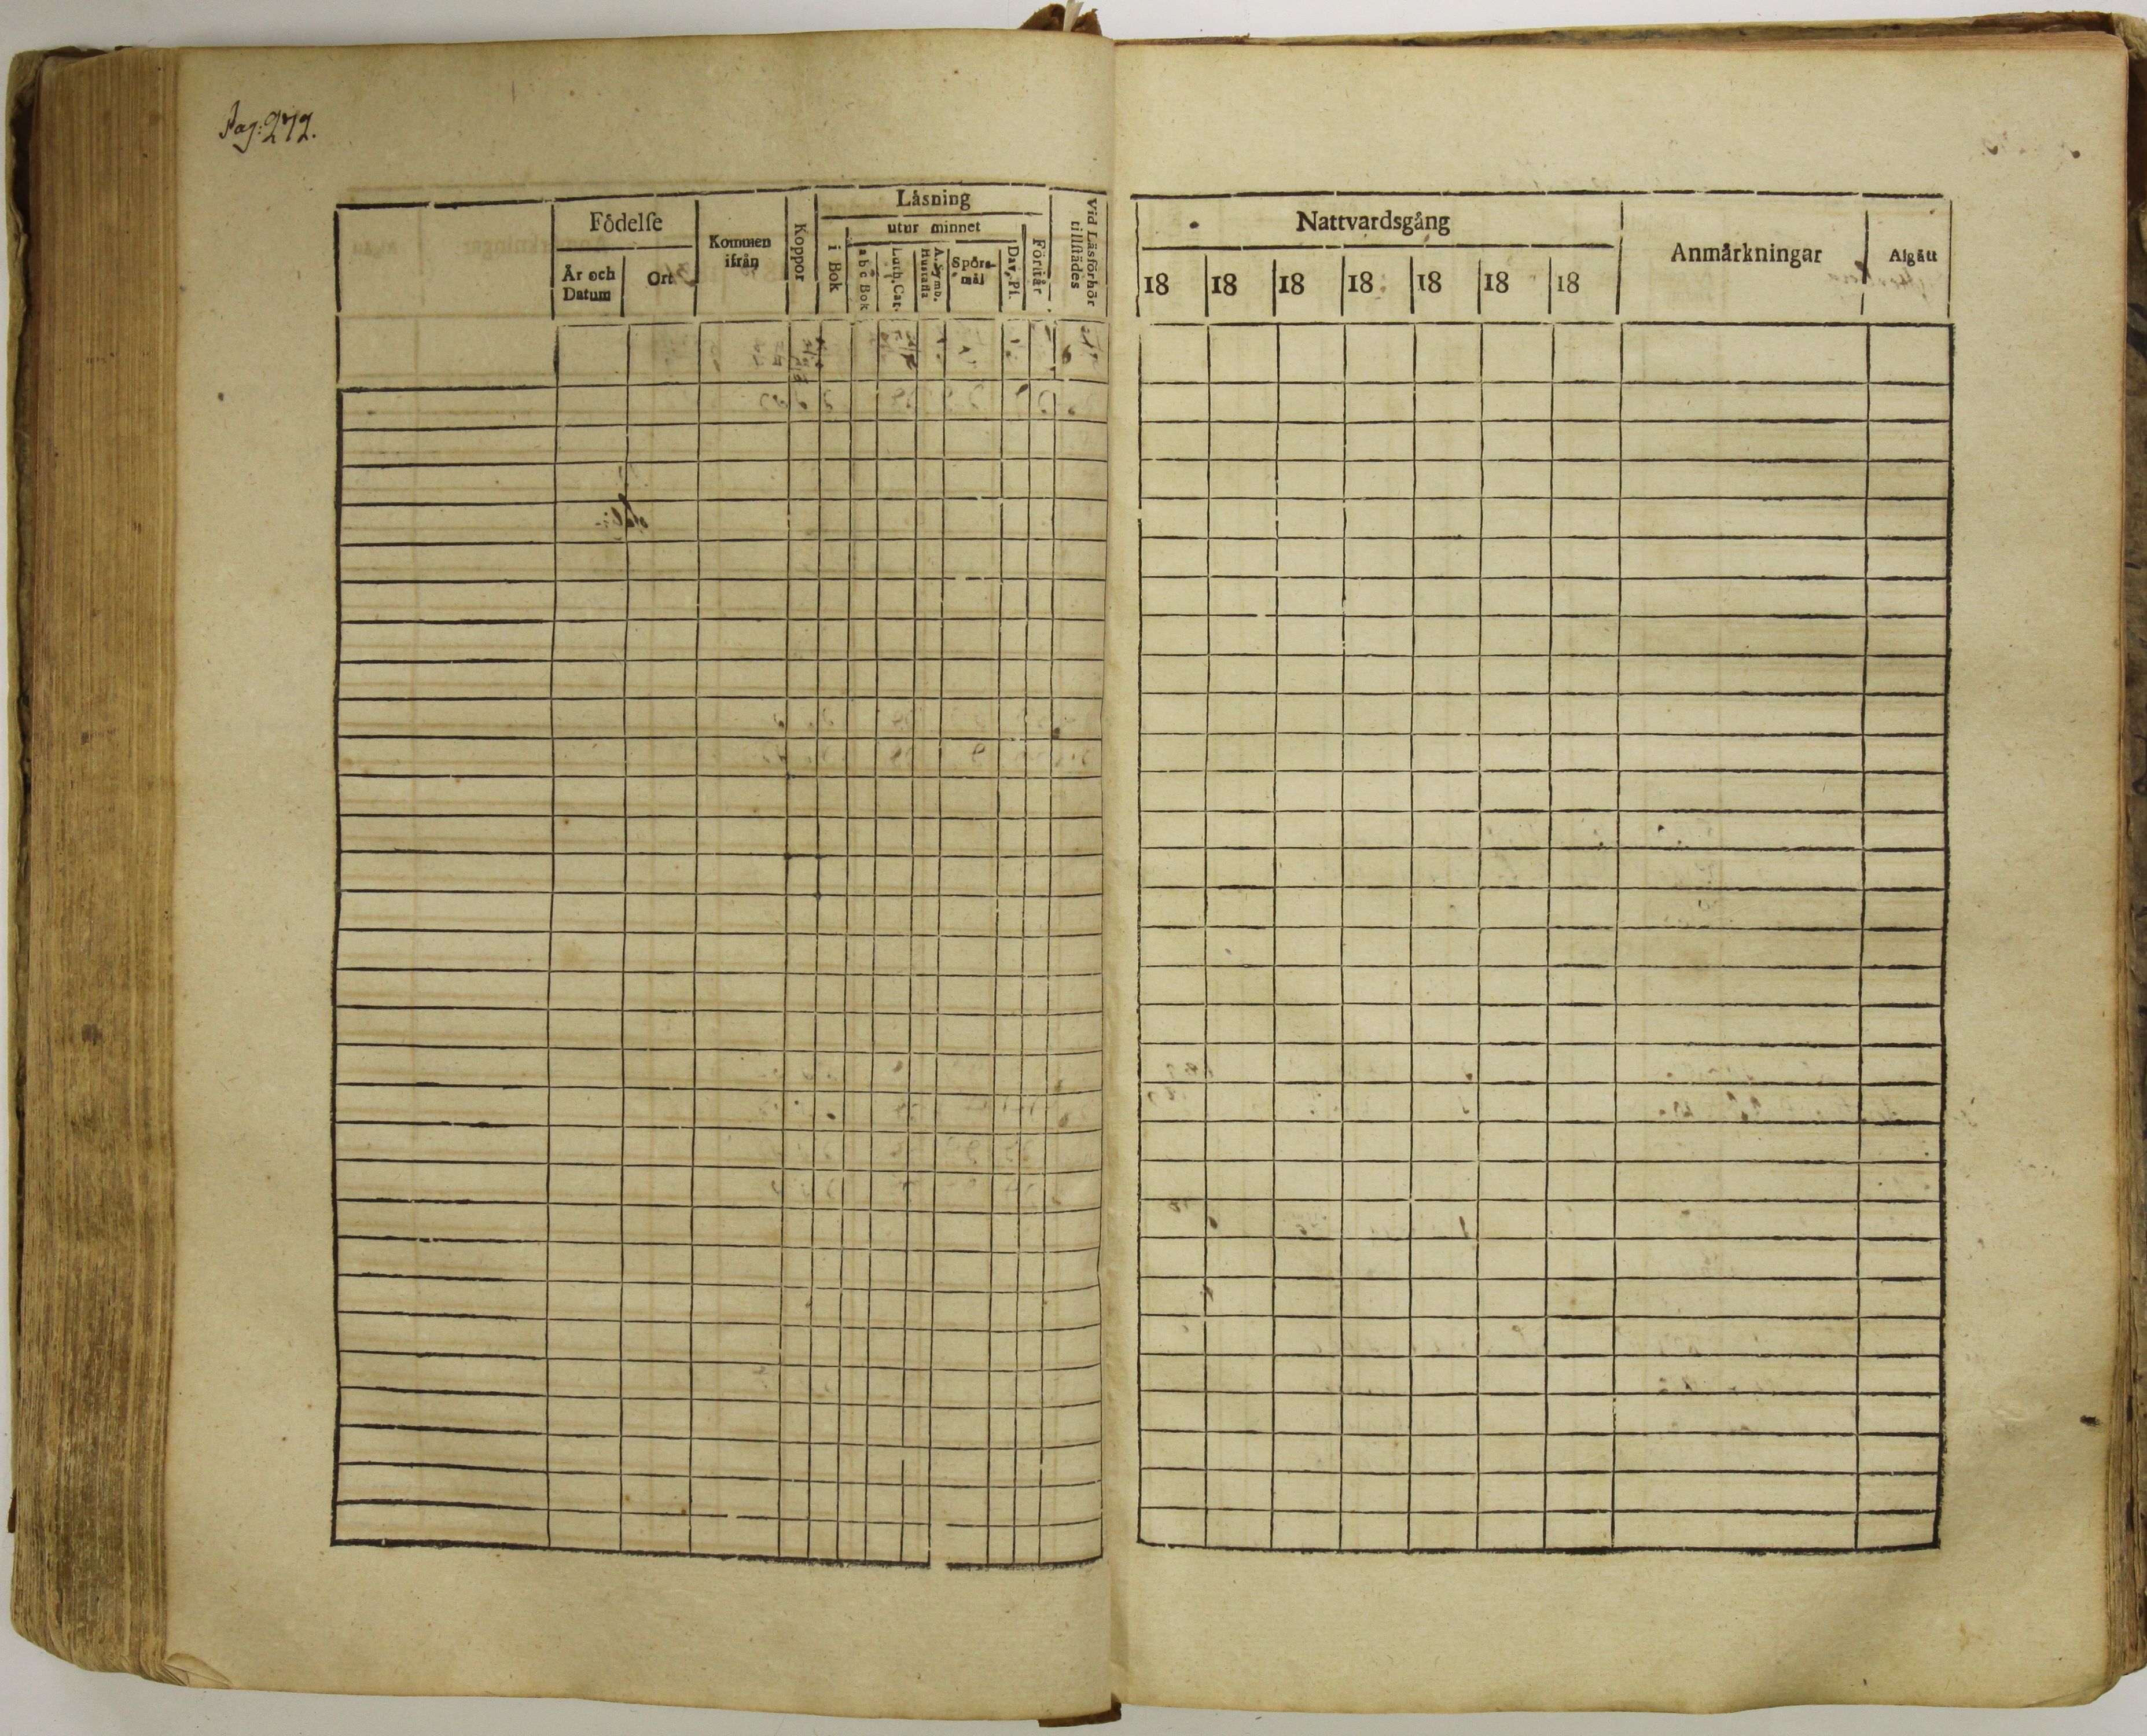 Pag: 272.
Födelſe
År och Datum
Ort
Kommen ifrån
Koppor
Läsning
i Bok
utur minnet
a b c Bok
Luth. Cat.
A. Symb. Hustafla
Spörsmål
Dav. Ps.
Förstår
Vid Läsförhör tillſtädes
Nattvardsgång
18 18 18 18 18 18 18
Anmärkningar
Afgått